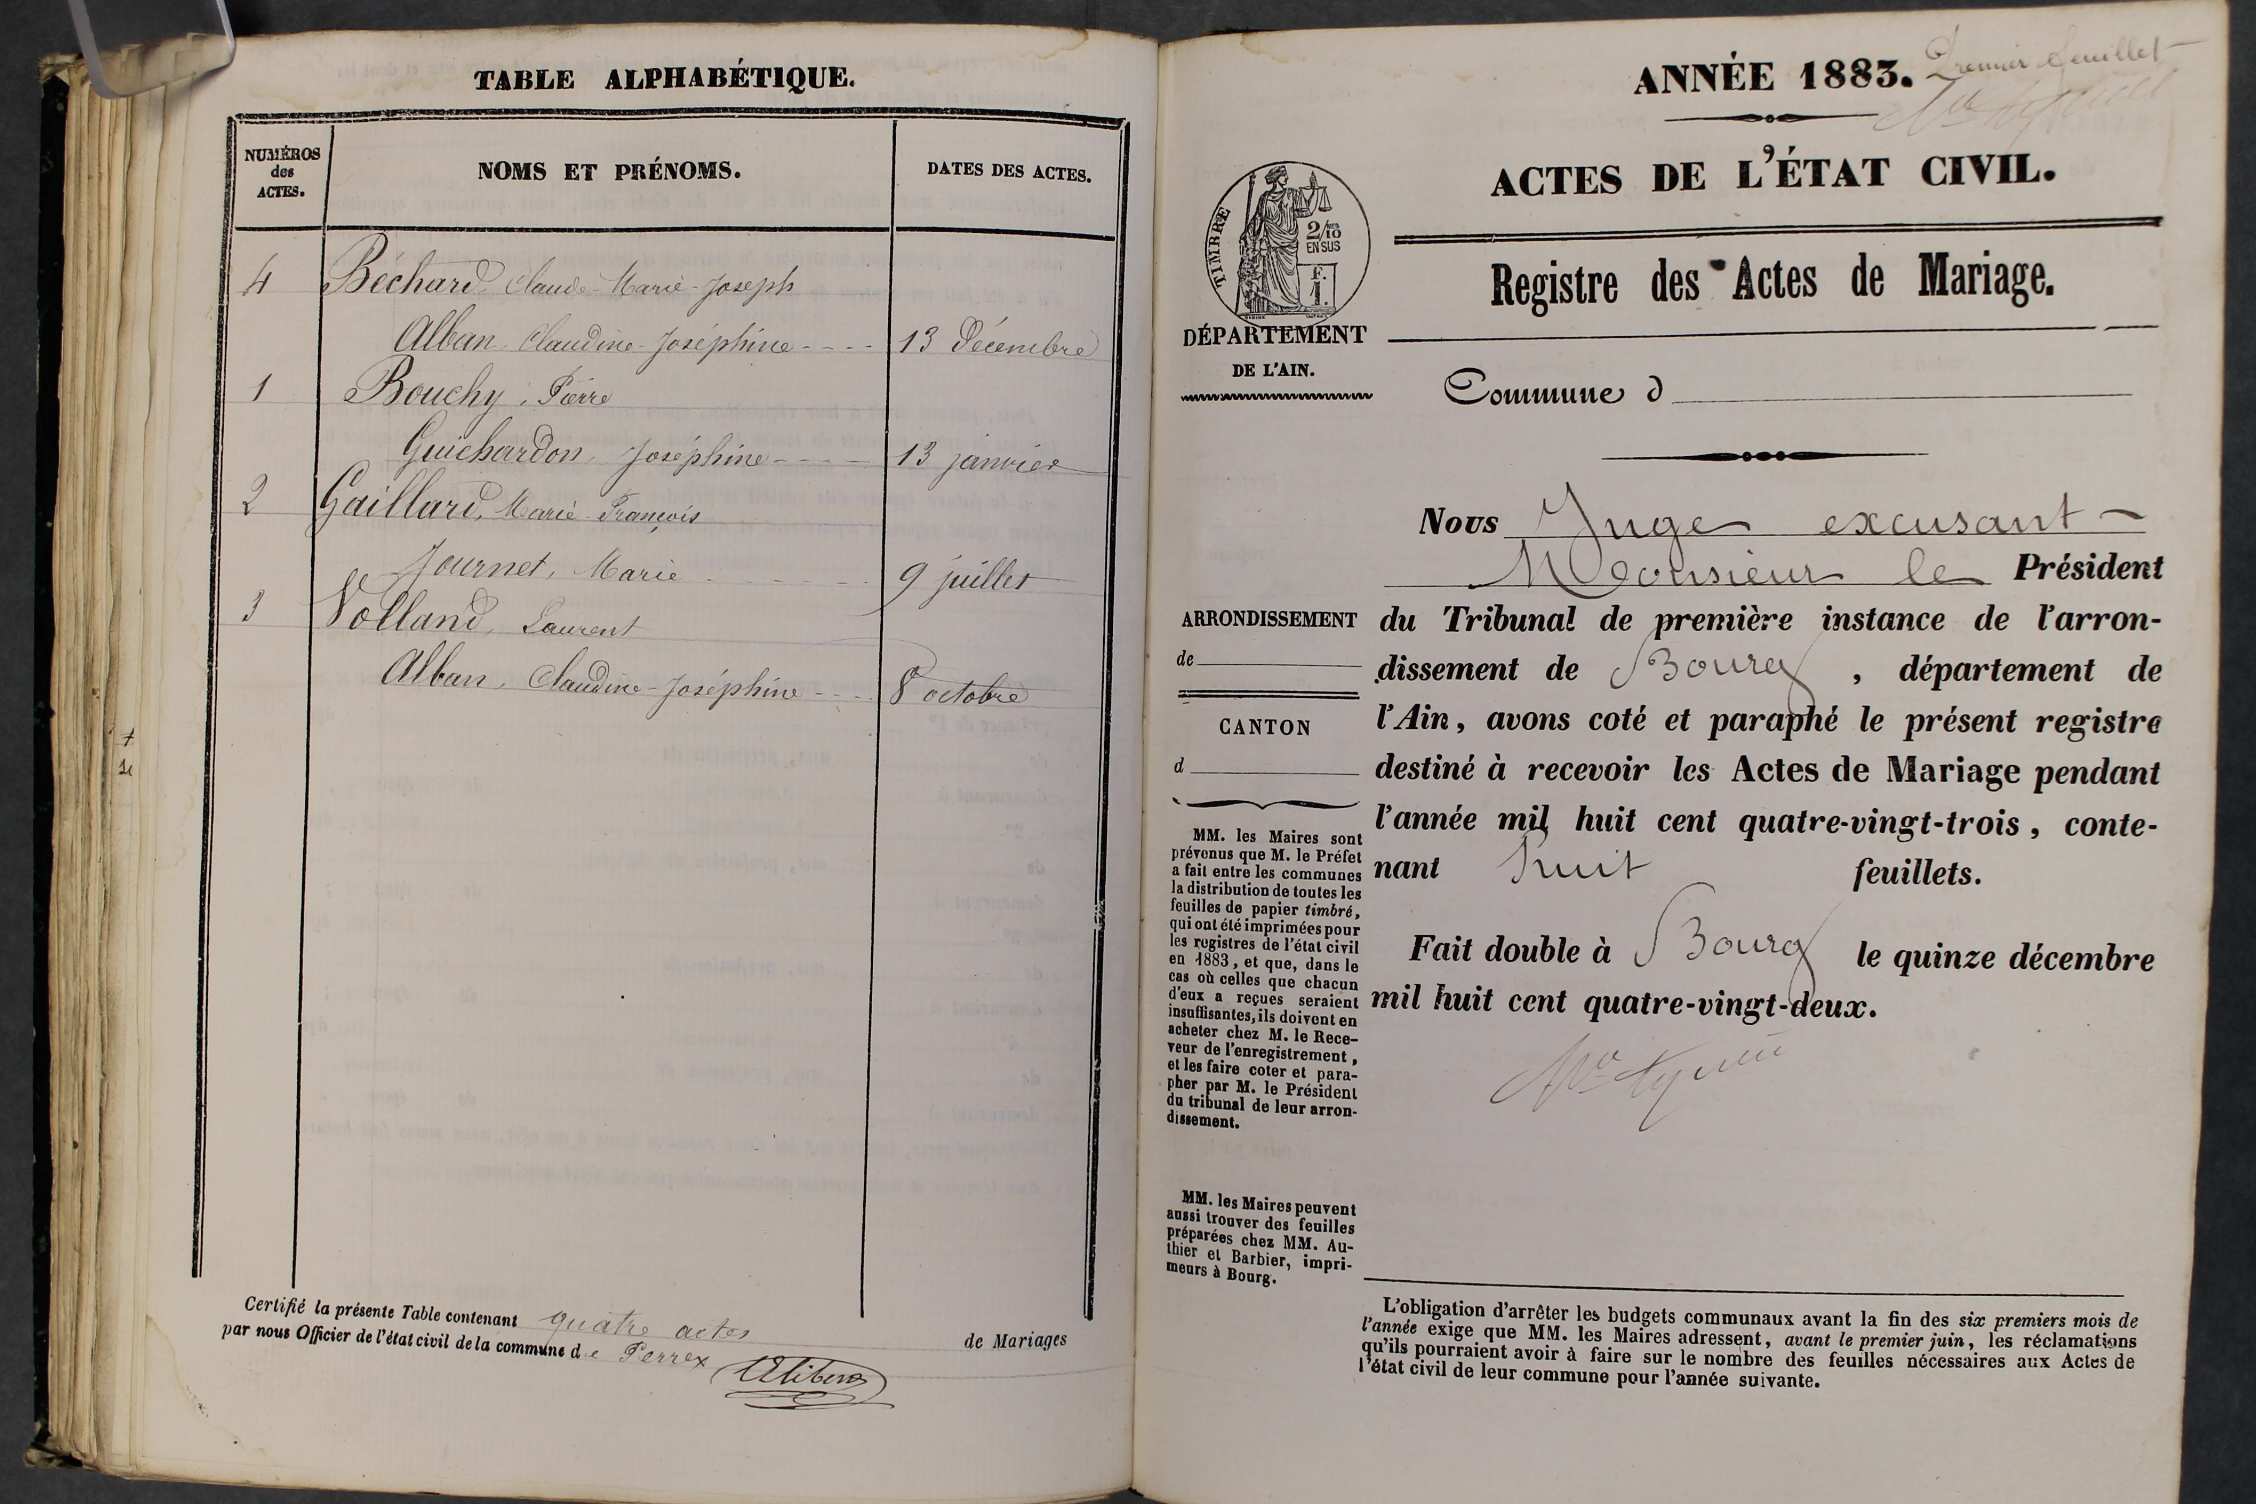 TABLE ALPHABÉTIQUE.
NUMÉROS
des
ACTES.
NOMS ET PRÉNOMS.
DATES DES ACTES.
4 Béchard, Claude-Marie-Joseph
Alban, Claudine-Joséphine ---- 13 Décembre
1 Bouchy, Pierre
Guichardon, Joséphine ---- 13 janvier
2 Gaillard, Marie-François
Journet, Marie ---- 9 juillet
3 Volland, Laurent
Alban, Claudine-Joséphine ---- 8 octobre
Certifié la présente Table contenant quatre actes de Mariages
par nous Officier de l'état civil de la commune de Perrex
ANNÉE 1883.
Premier feuillet
ACTES DE L'ÉTAT CIVIL.
TIMBRE
2/10
EN SUS
F.
1.
Registre des Actes de Mariage.
DÉPARTEMENT
DE L'AIN.
Commune d
Nous Juge excusant
Monsieur le Président
du Tribunal de première instance de l'arron-
dissement de Bourg, département de
l'Ain, avons coté et paraphé le présent registre
destiné à recevoir les Actes de Mariage pendant
l'année mil huit cent quatre-vingt-trois, conte-
nant huit feuillets.
Fait double à Bourg le quinze décembre
mil huit cent quatre-vingt-deux.
ARRONDISSEMENT
de
CANTON
d
MM. les Maires sont
prévenus que M. le Préfet
a fait entre les communes
la distribution de toutes les
feuilles de papier timbré,
qui ont été imprimées pour
les registres de l'état civil
en 1883, et que, dans le
cas où celles que chacun
d'eux a reçues seraient
insuffisantes, ils doivent en
acheter chez M. le Rece-
veur de l'enregistrement,
et les faire coter et para-
pher par M. le Président
du tribunal de leur arron-
dissement.
MM. les Maires peuvent
aussi trouver des feuilles
préparées chez MM. Au-
thier et Barbier, impri-
meurs à Bourg.
L'obligation d'arrêter les budgets communaux avant la fin des six premiers mois de
l'année exige que MM. les Maires adressent, avant le premier juin, les réclamations
qu'ils pourraient avoir à faire sur le nombre des feuilles nécessaires aux Actes de
l'état civil de leur commune pour l'année suivante.